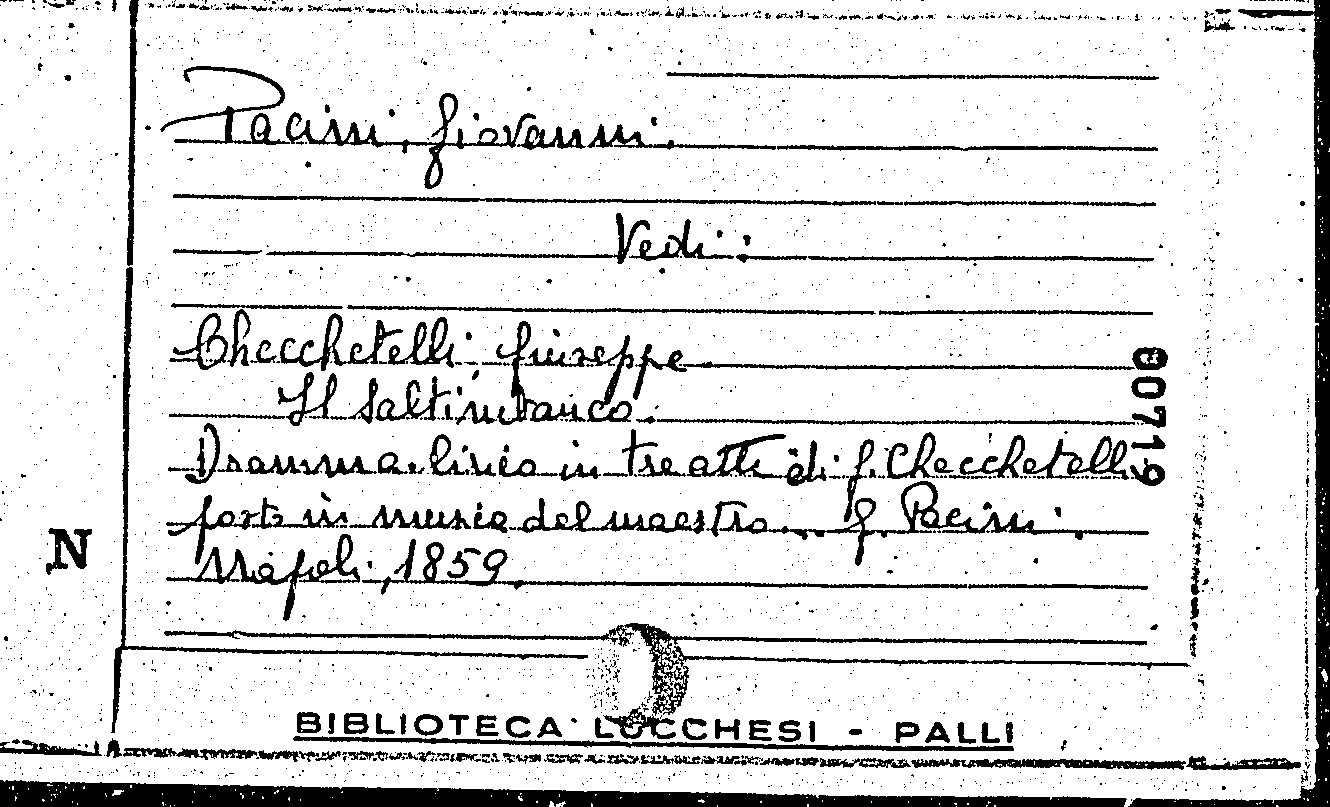 Pacini, Giovanni.
Vedi:
Checchetelli, Giuseppe.
Il Saltimbanco.
Dramma lirico in tre atti di G. Checchetelli
posto in musica del maestro... G. Pacini.
Napoli, 1859.
00719
N
BIBLIOTECA LUCCHESI - PALLI